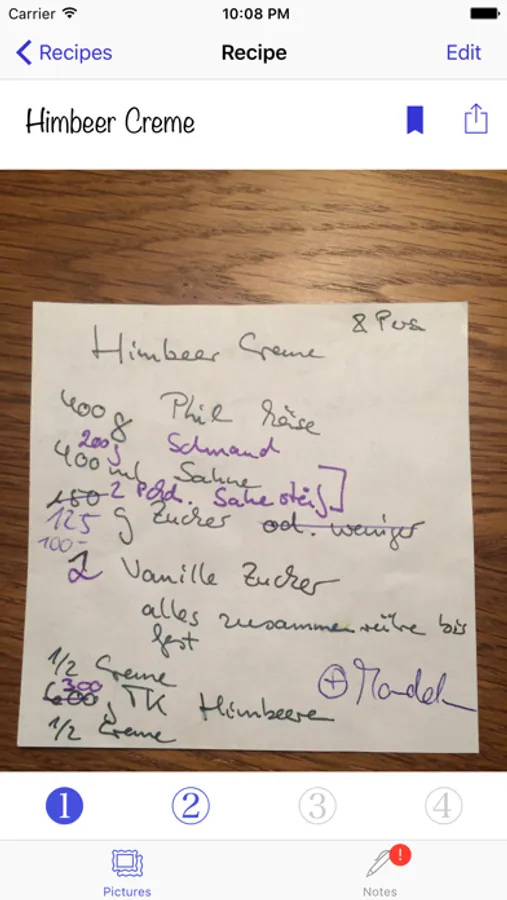 Carrier 10:08 PM
Recipes Recipe Edit
Himbeer Creme
8 Pers
Himbeer Creme
400 g Phil Käse
200 g Schmand
400 ml Sahne
2 Sahnesteif
150
125 g Zucker od. weniger
100-
2 Vanille Zucker
alles zusammenrühre bis
fest
1/2 Creme
300
600 g TK Himbeere
1/2 Creme
⊕ Mandel
1 2 3 4
!
Pictures Notes